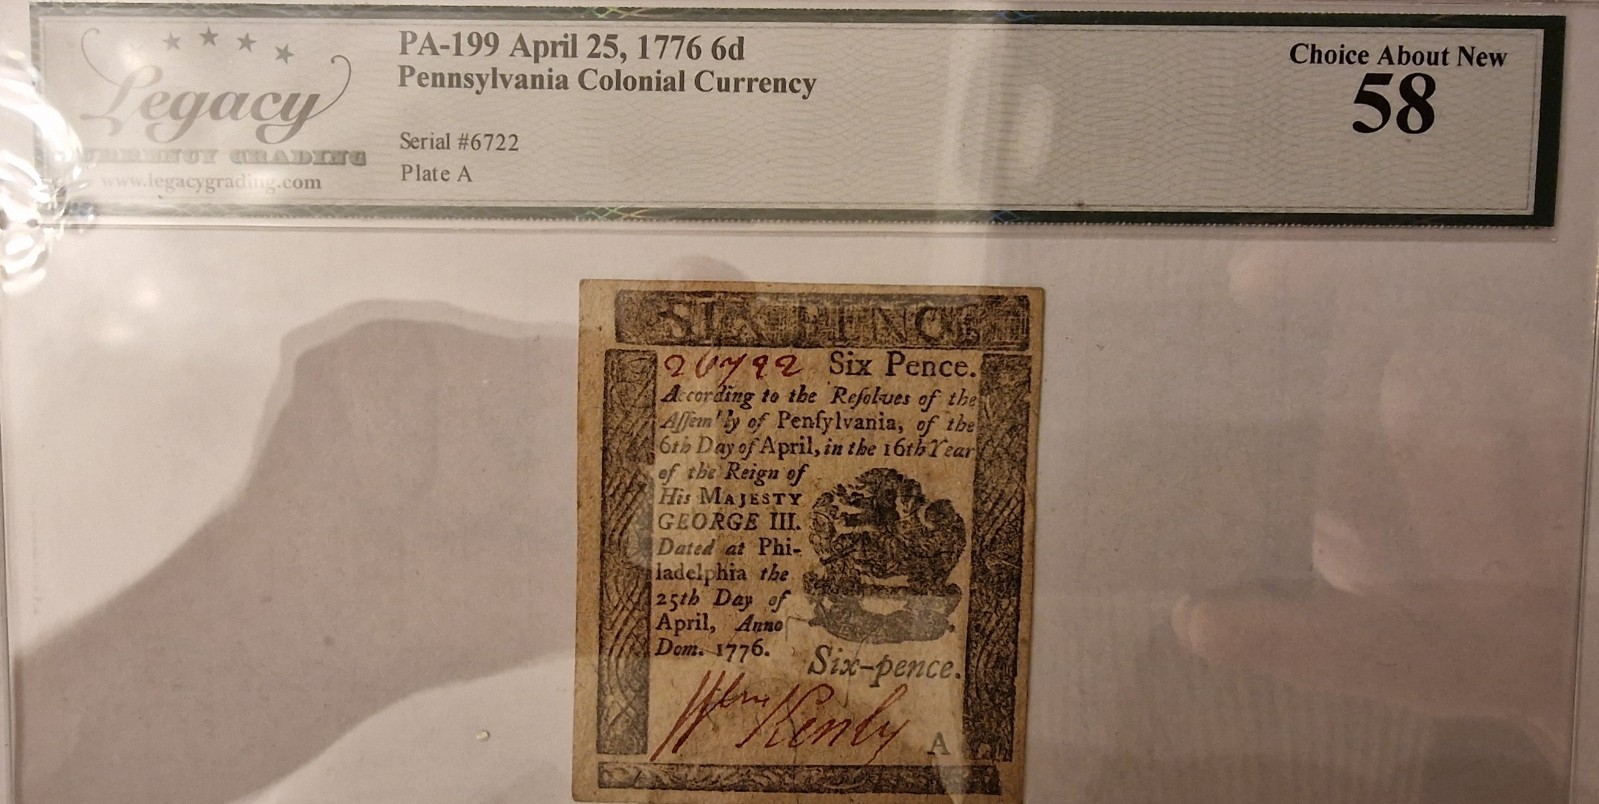 PA-199 April 25, 1776 6d
Pennsylvania Colonial Currency
Choice About New
58
Legacy
CURRENCY GRADING
www.legacygrading.com
Serial #6722
Plate A
SIX PENCE
26722 Six Pence.
According to the Reſolves of the
Aſſem'ly of Penſylvania, of the
6th Day of April, in the 16th Year
of the Reign of
His MAJESTY
GEORGE III.
Dated at Phi-
ladelphia the
25th Day of
April, Anno
Dom. 1776.
Six-pence.
A